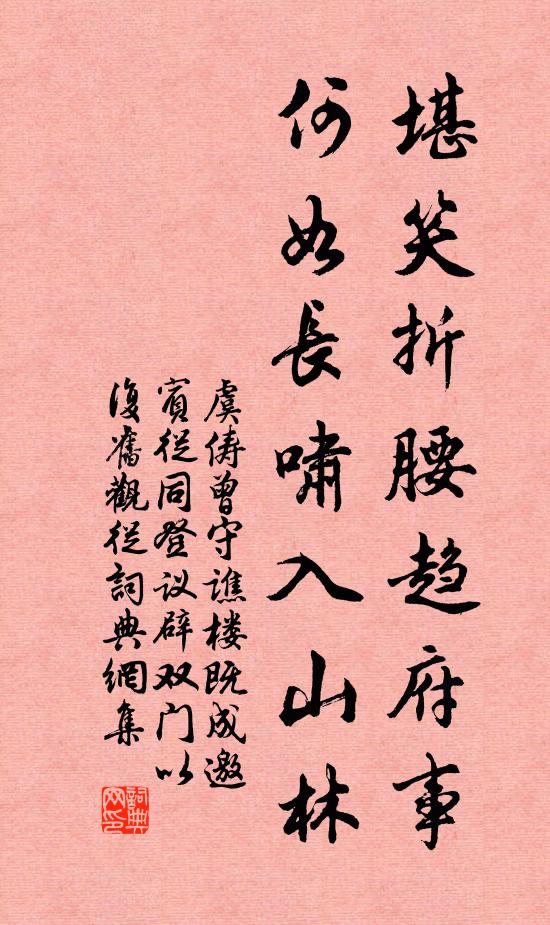 堪笑折腰趋府事
何如長嘯入山林
虞俦曾守譙楼既成邀
賓從同登议辟双门以
復舊觀從詞典網集
詞典网印